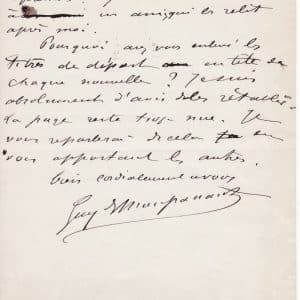 à un ami qui les relit
après moi.
Pourquoi avez vous enlevé les
titres de départ en tête de
chaque nouvelle ? Je suis
absolument d'avis de les rétablir
La page reste trop nue. Je
vous reparlerai de cela en
vous apportant les autres.
bien cordialement à vous
Guy de Maupassant